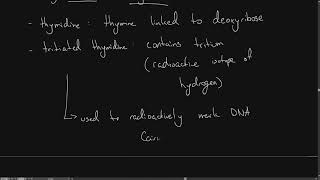 - thymidine : thymine linked to deoxyribose
- tritiated thymidine : contains tritium
(radioactive isotope of
hydrogen)
↳ used to radioactively mark DNA
Cair